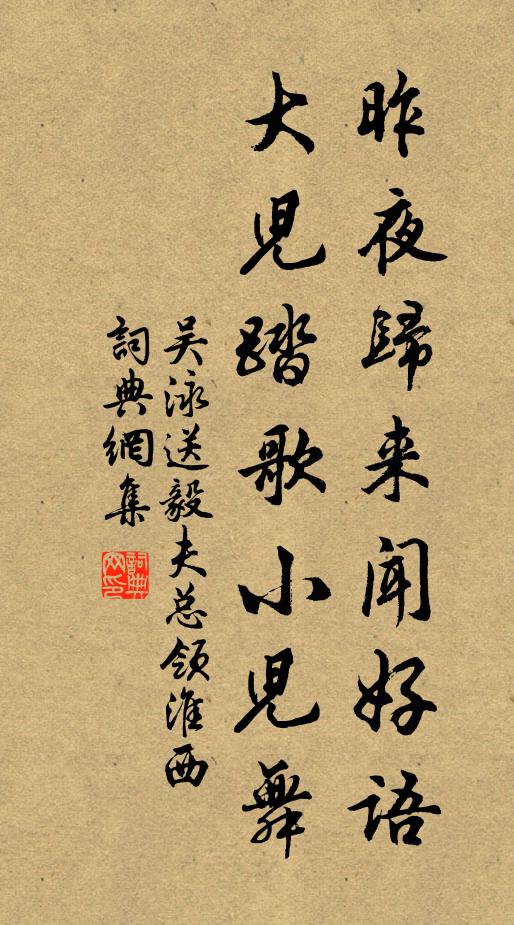 昨夜歸来闻好语
大児踏歌小児舞
吴泳送毅夫总领淮西
詞典網集
詞典网印